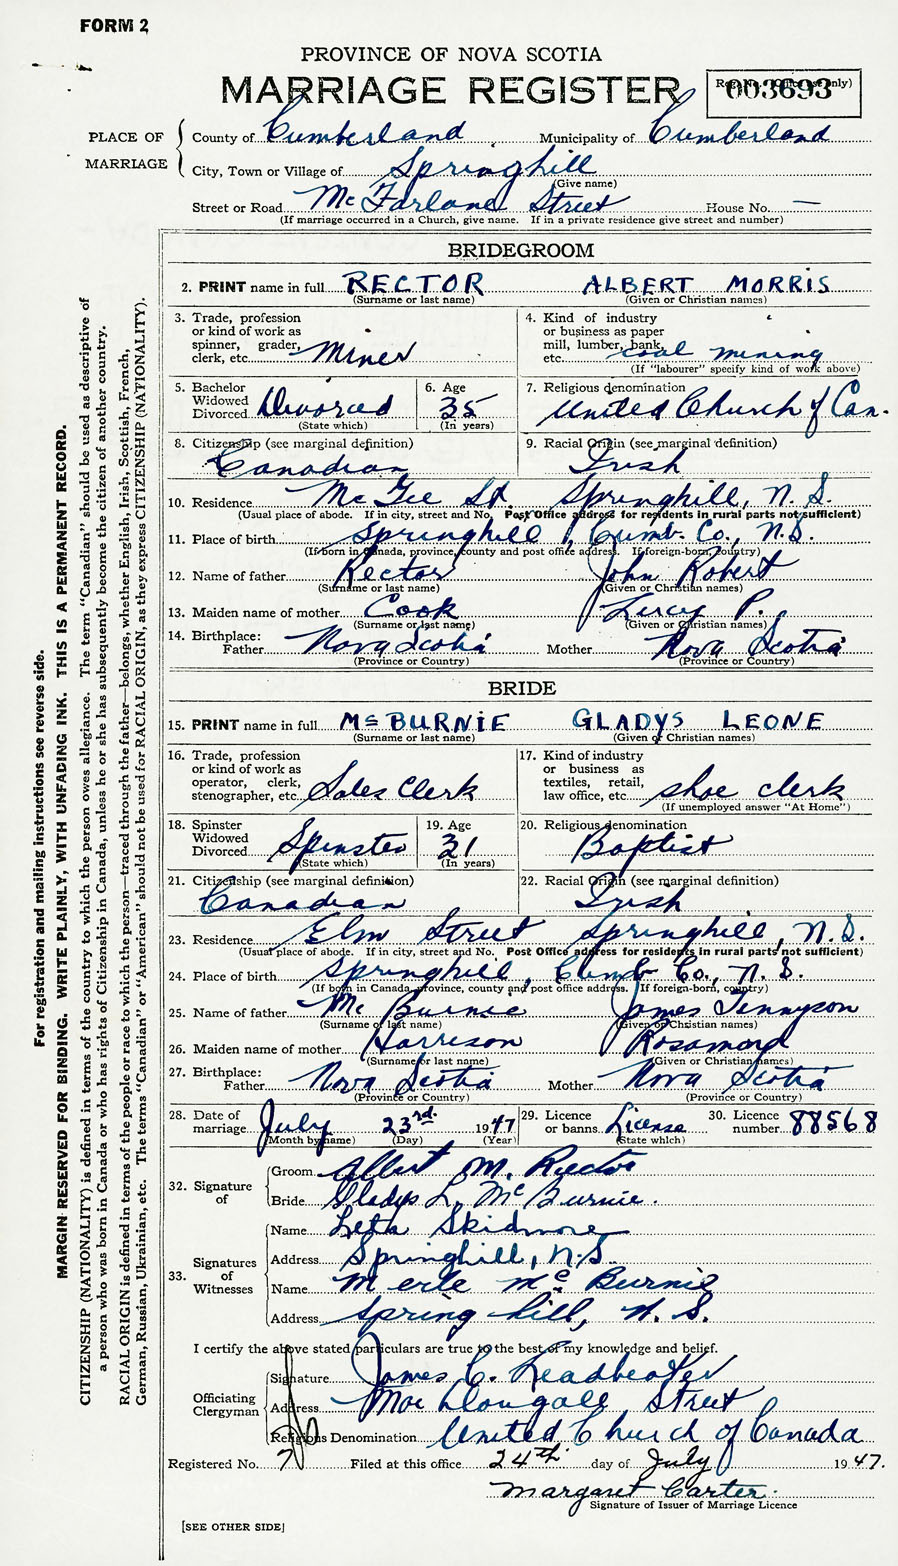 FORM 2
PROVINCE OF NOVA SCOTIA
MARRIAGE REGISTER
003693
PLACE OF MARRIAGE
County of Cumberland Municipality of Cumberland
City, Town or Village of Springhill
(Give name)
Street or Road McFarlane Street House No. —
(If marriage occurred in a Church, give name. If in a private residence give street and number)
BRIDEGROOM
2. PRINT name in full RECTOR ALBERT MORRIS
(Surname or last name) (Given or Christian names)
3. Trade, profession or kind of work as spinner, grader, clerk, etc. Miner
4. Kind of industry or business as paper mill, lumber, bank, etc. coal mining
(If "labourer" specify kind of work above)
5. Bachelor Widowed Divorced Divorced (State which)
6. Age 35 (In years)
7. Religious denomination United Church of Can.
8. Citizenship (see marginal definition) Canadian
9. Racial Origin (see marginal definition) Irish
10. Residence McGee St Springhill, N. S.
(Usual place of abode. If in city, street and No. Post Office address for residents in rural parts not sufficient)
11. Place of birth Springhill, Cumb. Co., N.S.
(If born in Canada, province, county and post office address. If foreign-born, country)
12. Name of father Rector John Robert
(Surname or last name) (Given or Christian names)
13. Maiden name of mother Cook Lucy P.
(Surname or last name) (Given or Christian names)
14. Birthplace:
Father Nova Scotia Mother Nova Scotia
(Province or Country) (Province or Country)
BRIDE
15. PRINT name in full McBURNIE GLADYS LEONE
(Surname or last name) (Given or Christian names)
16. Trade, profession or kind of work as operator, clerk, stenographer, etc. Sales Clerk
17. Kind of industry or business as textiles, retail, law office, etc. shoe clerk
(If unemployed answer "At Home")
18. Spinster Widowed Divorced Spinster (State which)
19. Age 31 (In years)
20. Religious denomination Baptist
21. Citizenship (see marginal definition) Canadian
22. Racial Origin (see marginal definition) Irish
23. Residence Elm Street Springhill, N.S.
(Usual place of abode. If in city, street and No. Post Office address for residents in rural parts not sufficient)
24. Place of birth Springhill, Cumb Co., N. S.
(If born in Canada, province, county and post office address. If foreign-born, country)
25. Name of father McBurnie James Tennyson
(Surname or last name) (Given or Christian names)
26. Maiden name of mother Harrison Rosamond
(Surname or last name) (Given or Christian names)
27. Birthplace:
Father Nova Scotia Mother Nova Scotia
(Province or Country) (Province or Country)
28. Date of marriage July 23rd. 1947
(Month by name) (Day) (Year)
29. Licence or banns License (State which)
30. Licence number 88568
32. Signature of
Groom Albert M. Rector
Bride Gladys L. McBurnie.
33. Signatures of Witnesses
Name Leta Skidmore
Address Springhill, N.S.
Name Merle McBurnie
Address Spring hill, N. S.
I certify the above stated particulars are true to the best of my knowledge and belief.
Officiating Clergyman
Signature James C. Leadbeater
Address MacDougall Street
Religious Denomination United Church of Canada
Registered No. 7 Filed at this office 24th day of July 1947.
Margaret Carter.
Signature of Issuer of Marriage Licence
[SEE OTHER SIDE]
For registration and mailing instructions see reverse side.
MARGIN RESERVED FOR BINDING. WRITE PLAINLY, WITH UNFADING INK. THIS IS A PERMANENT RECORD.
CITIZENSHIP (NATIONALITY) is defined in terms of the country to which the person owes allegiance. The term "Canadian" should be used as descriptive of
a person who was born in Canada or who has rights of Citizenship in Canada, unless he or she has subsequently become the citizen of another country.
RACIAL ORIGIN is defined in terms of the people or race to which the person—traced through the father—belongs, whether English, Irish, Scottish, French,
German, Russian, Ukrainian, etc. The terms "Canadian" or "American" should not be used for RACIAL ORIGIN, as they express CITIZENSHIP (NATIONALITY).